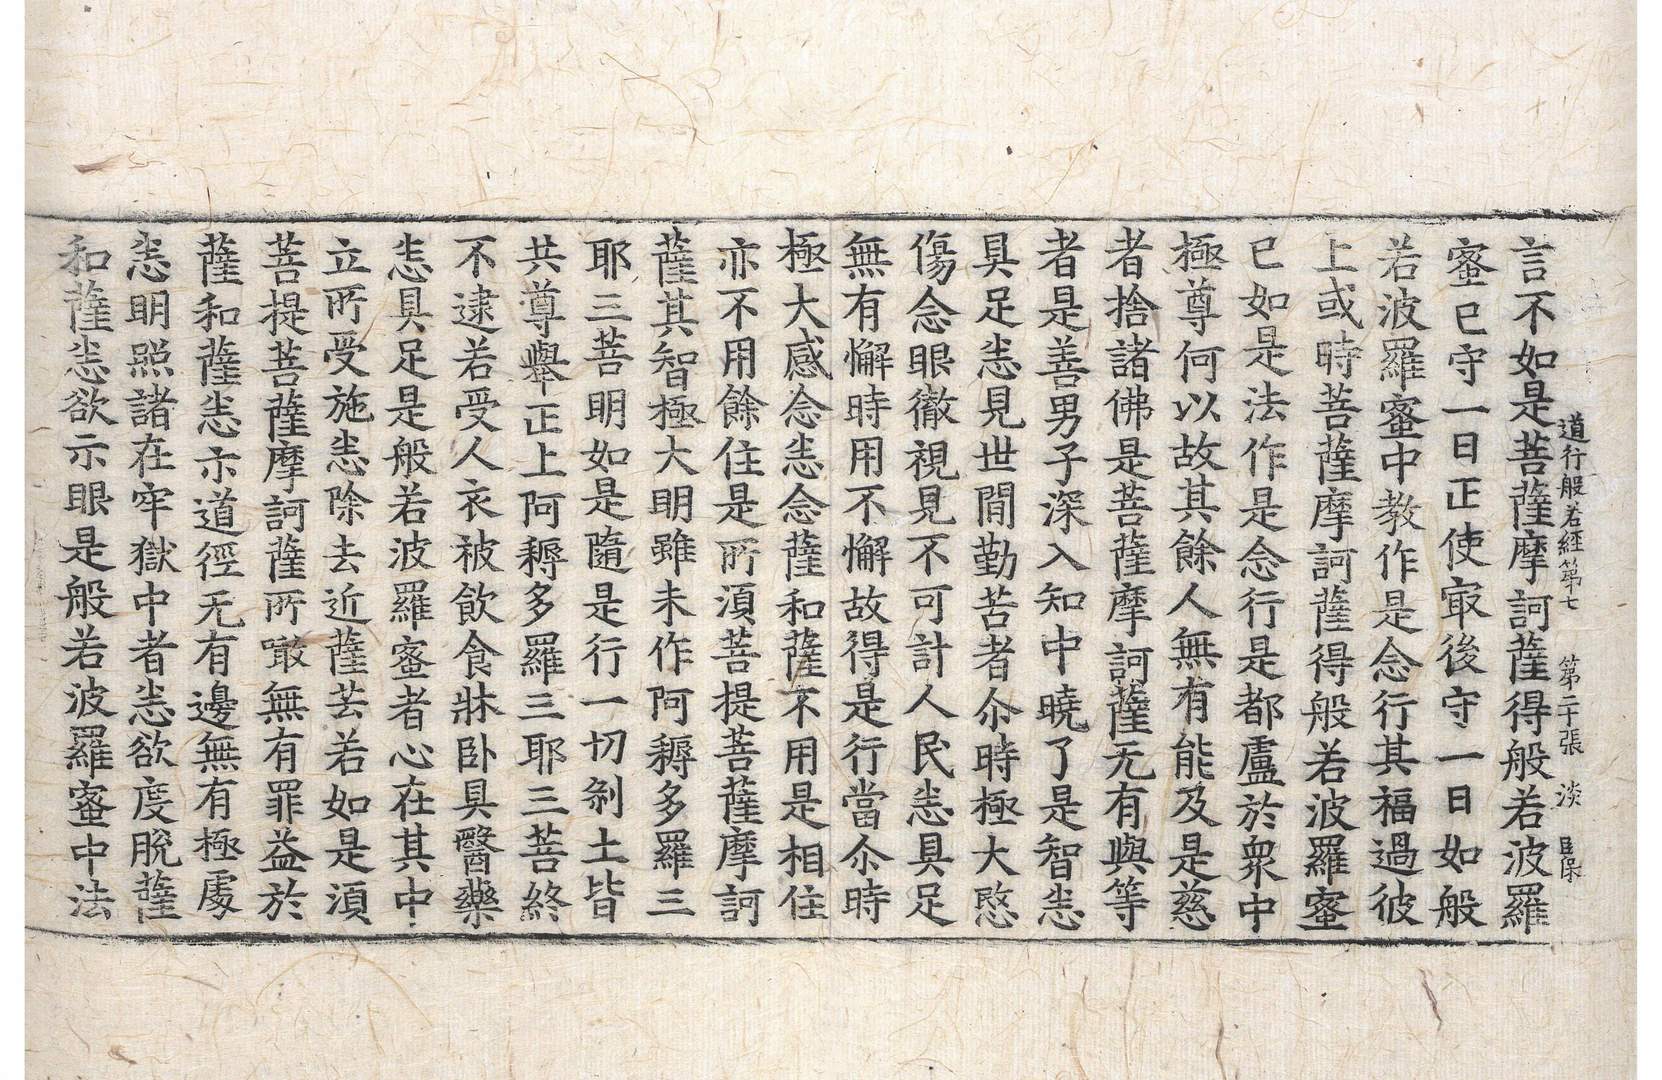 道行般若經第七 第二十張 淡
言不如是菩薩摩訶薩得般若波羅
蜜已守一日正使㝡後守一日如般
若波羅蜜中教作是念行其福過彼
上或時菩薩摩訶薩得般若波羅蜜
已如是法作是念行是都盧於衆中
極尊何以故其餘人無有能及是慈
者捨諸佛是菩薩摩訶薩无有與等
者是善男子深入知中曉了是智恙
具足恙見世間勤苦者尒時極大愍
傷念眼徹視見不可計人民恙具足
無有懈時用不懈故得是行當尒時
極大感念恙念薩和薩不用是相住
亦不用餘住是所湏菩提菩薩摩訶
薩其智極大明雖未作阿耨多羅三
耶三菩明如是隨是行一切刹土皆
共尊舉正上阿耨多羅三耶三菩終
不逮若受人衣被飲食牀卧具醫藥
恙具足是般若波羅蜜者心在其中
立所受施恙除去近薩芸若如是湏
菩提菩薩摩訶薩所噉無有罪益於
薩和薩恙示道徑无有邊無有極處
恙明照諸在牢獄中者恙欲度脫薩
和薩恙欲示眼是般若波羅蜜中法